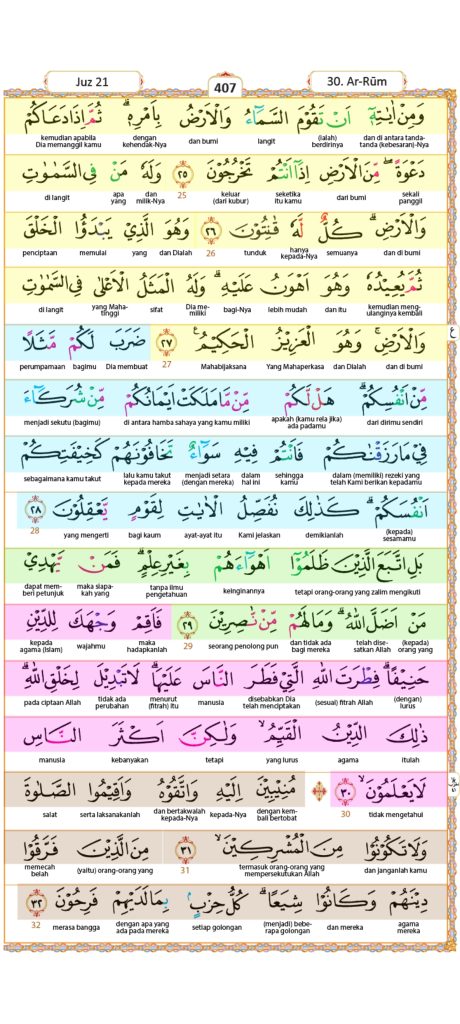 Juz 21 407 30. Ar-Rūm
وَمِنْ اٰيٰتِهٖٓ اَنْ تَقُوْمَ السَّمَاۤءُ وَالْاَرْضُ بِاَمْرِهٖۗ ثُمَّ اِذَا دَعَاكُمْ
dan di antara tanda-tanda (kebesaran)-Nya (ialah) berdirinya langit dan bumi dengan kehendak-Nya kemudian apabila Dia memanggil kamu
دَعْوَةًۖ مِّنَ الْاَرْضِ اِذَآ اَنْتُمْ تَخْرُجُوْنَ ٢٥ وَلَهٗ مَنْ فِى السَّمٰوٰتِ
sekali panggil dari bumi seketika itu kamu keluar (dari kubur) 25 dan milik-Nya apa yang di langit
وَالْاَرْضِۗ كُلٌّ لَّهٗ قٰنِتُوْنَ ٢٦ وَهُوَ الَّذِيْ يَبْدَؤُا الْخَلْقَ
dan di bumi semuanya hanya kepada-Nya tunduk 26 dan Dialah yang memulai penciptaan
ثُمَّ يُعِيْدُهٗ وَهُوَ اَهْوَنُ عَلَيْهِۗ وَلَهُ الْمَثَلُ الْاَعْلٰى فِى السَّمٰوٰتِ
kemudian meng-ulanginya kembali dan itu lebih mudah bagi-Nya Dia me-miliki sifat yang Maha-tinggi di langit
وَالْاَرْضِۚ وَهُوَ الْعَزِيْزُ الْحَكِيْمُ ࣖ ٢٧ ضَرَبَ لَكُمْ مَّثَلًا
dan di bumi dan Dialah Yang Mahaperkasa Mahabijaksana 27 Dia membuat bagimu perumpamaan
ع
مِّنْ اَنْفُسِكُمْۗ هَلْ لَّكُمْ مِّنْ مَّا مَلَكَتْ اَيْمَانُكُمْ مِّنْ شُرَكَاۤءَ
dari dirimu sendiri apakah (kamu rela jika) ada padamu di antara hamba sahaya yang kamu miliki menjadi sekutu (bagimu)
فِيْ مَا رَزَقْنٰكُمْ فَاَنْتُمْ فِيْهِ سَوَاۤءٌ تَخَافُوْنَهُمْ كَخِيْفَتِكُمْ
dalam (memiliki) rezeki yang telah Kami berikan kepadamu sehingga kamu dalam hal ini menjadi setara (dengan mereka) lalu kamu takut kepada mereka sebagaimana kamu takut
اَنْفُسَكُمْۗ كَذٰلِكَ نُفَصِّلُ الْاٰيٰتِ لِقَوْمٍ يَّعْقِلُوْنَ ٢٨
(kepada) sesamamu demikianlah Kami jelaskan ayat-ayat itu bagi kaum yang mengerti 28
بَلِ اتَّبَعَ الَّذِيْنَ ظَلَمُوْٓا اَهْوَاۤءَهُمْ بِغَيْرِ عِلْمٍۗ فَمَنْ يَّهْدِيْ
tetapi orang-orang yang zalim mengikuti keinginannya tanpa ilmu pengetahuan maka siapa-kah yang dapat mem-beri petunjuk
مَنْ اَضَلَّ اللّٰهُۗ وَمَا لَهُمْ مِّنْ نّٰصِرِيْنَ ٢٩ فَاَقِمْ وَجْهَكَ لِلدِّيْنِ
(kepada) orang yang telah dise-satkan Allah dan tidak ada bagi mereka seorang penolong pun 29 maka hadapkanlah wajahmu kepada agama (Islam)
حَنِيْفًاۗ فِطْرَتَ اللّٰهِ الَّتِيْ فَطَرَ النَّاسَ عَلَيْهَاۗ لَا تَبْدِيْلَ لِخَلْقِ اللّٰهِۗ
(dengan) lurus (sesuai) fitrah Allah disebabkan Dia telah menciptakan manusia menurut (fitrah) itu tidak ada perubahan pada ciptaan Allah
ذٰلِكَ الدِّيْنُ الْقَيِّمُۙ وَلٰكِنَّ اَكْثَرَ النَّاسِ
itulah agama yang lurus tetapi kebanyakan manusia
لَا يَعْلَمُوْنَۙ ٣٠ ۞ مُنِيْبِيْنَ اِلَيْهِ وَاتَّقُوْهُ وَاَقِيْمُوا الصَّلٰوةَ
tidak mengetahui 30 dengan kem-bali bertobat kepada-Nya dan bertakwalah kepada-Nya serta laksanakanlah salat
وَلَا تَكُوْنُوْا مِنَ الْمُشْرِكِيْنَۙ ٣١ مِنَ الَّذِيْنَ فَرَّقُوْا
dan janganlah kamu termasuk orang-orang yang mempersekutukan Allah 31 (yaitu) orang-orang yang memecah belah
دِيْنَهُمْ وَكَانُوْا شِيَعًاۗ كُلُّ حِزْبٍۢ بِمَا لَدَيْهِمْ فَرِحُوْنَ ٣٢
agama mereka dan mereka (menjadi) bebe-rapa golongan setiap golongan dengan apa yang ada pada mereka merasa bangga 32